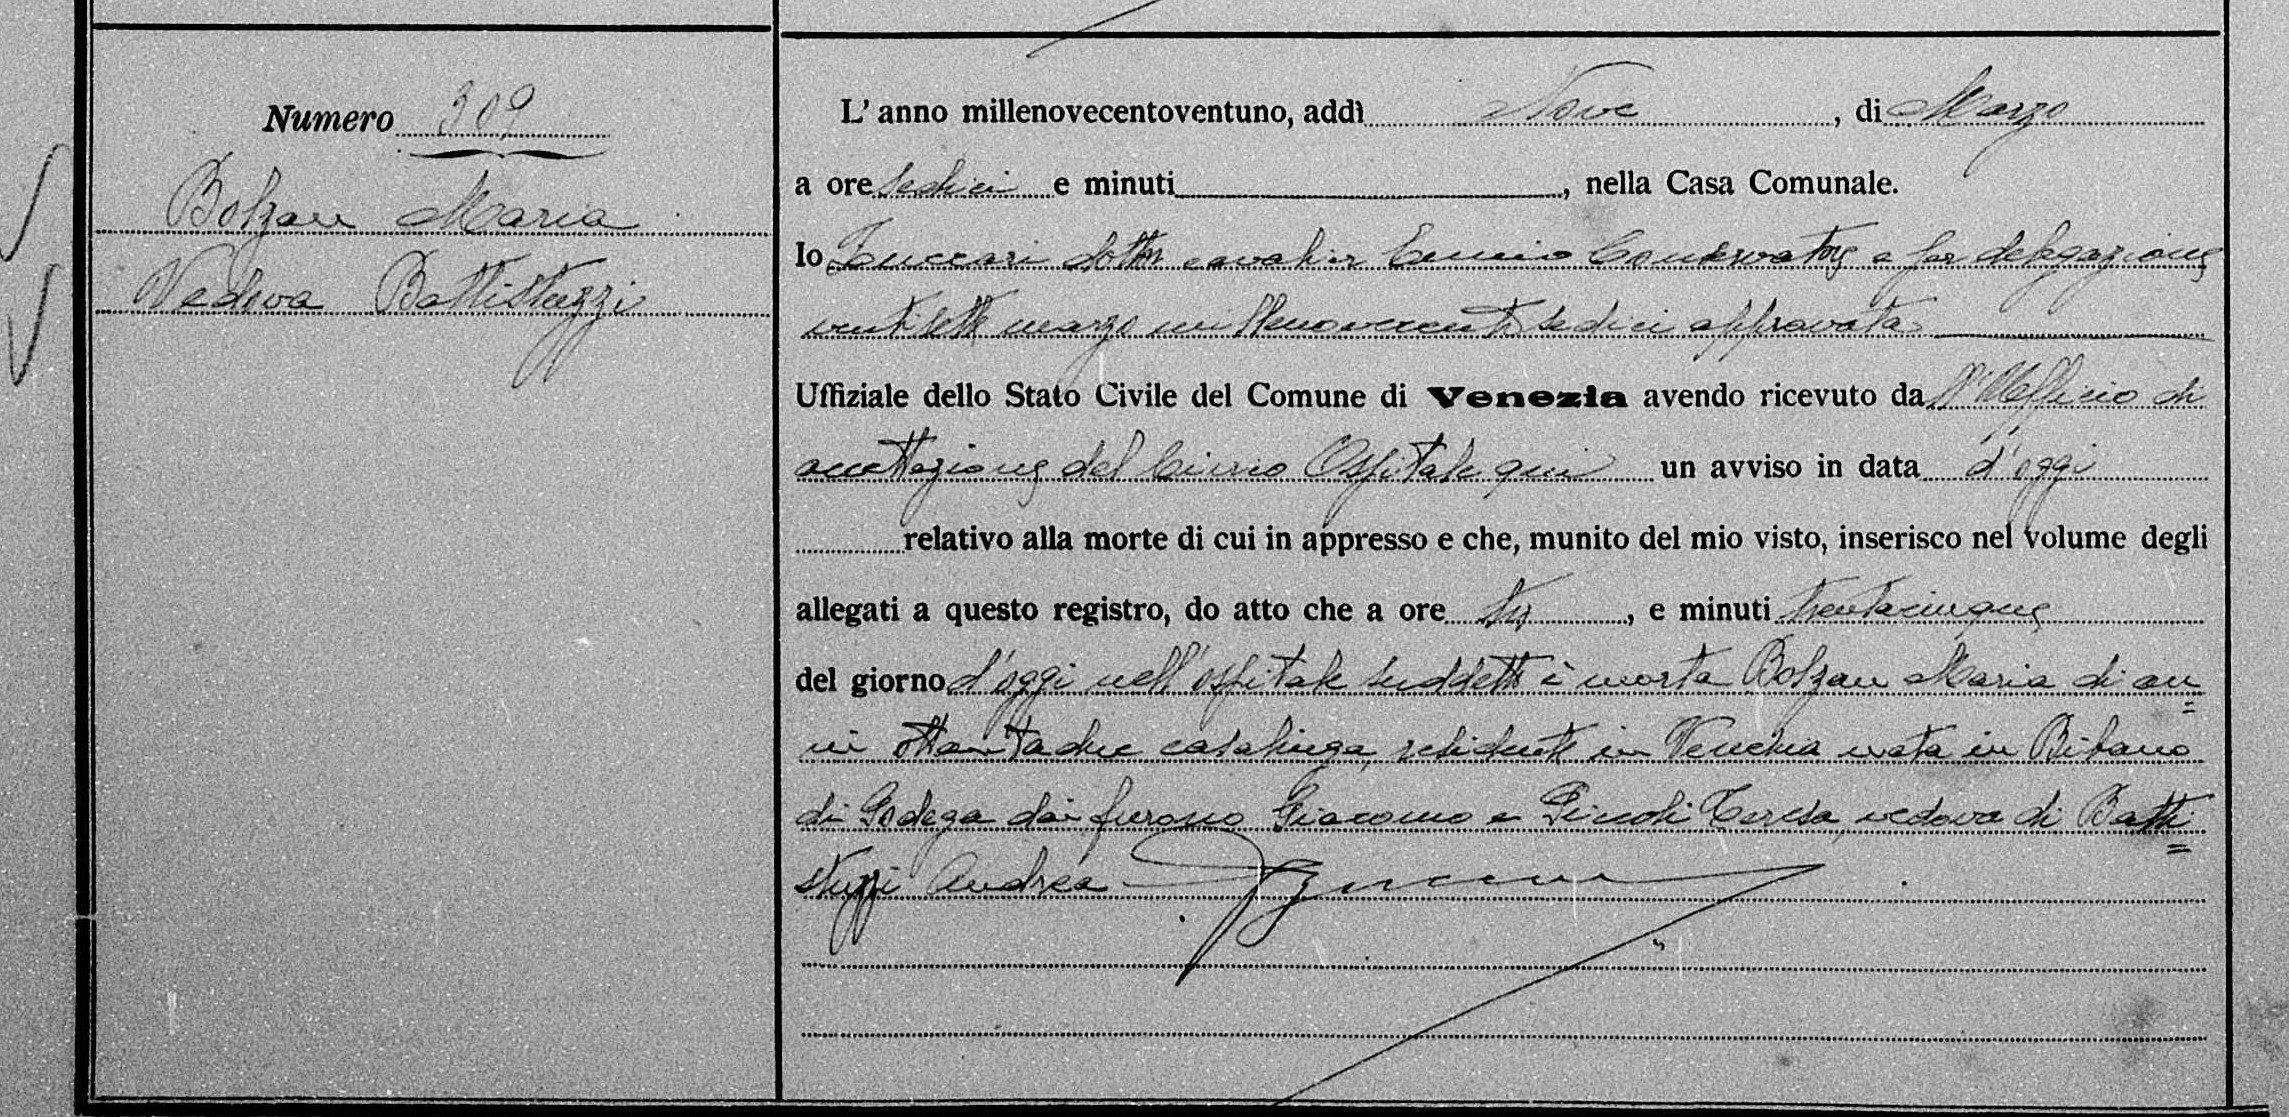 Numero 309
Bolzan Maria
Vedova Battistuzzi
L'anno millenovecentoventuno, addì Nove, di Marzo
a ore sedici e minuti, nella Casa Comunale.
Io Zuccari dottor cavalier Ennio Conservatore e per delegazione
ventisette marzo millenovecentosedici approvata
Uffiziale dello Stato Civile del Comune di Venezia avendo ricevuto dall'Ufficio di
accettazione del Civico Ospitale qui un avviso in data d'oggi
relativo alla morte di cui in appresso e che, munito del mio visto, inserisco nel volume degli
allegati a questo registro, do atto che a ore tre, e minuti trentacinque
del giorno d'oggi nell'ospitale suddetto è morta Bolzan Maria di an=
ni ottantadue casalinga, residente in Venezia nata in Bibano
di Godega dai furono Giacomo e Piccoli Teresa, vedova di Batti=
stuzzi Andrea